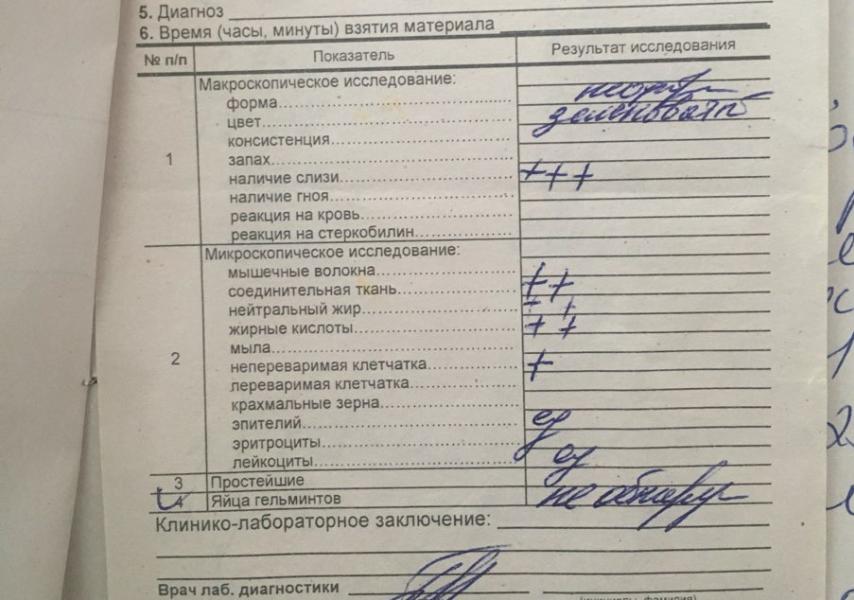 5. Диагноз
6. Время (часы, минуты) взятия материала
№ п/п Показатель Результат исследования
1 Макроскопическое исследование:
форма
цвет зеленоватый
консистенция
запах
наличие слизи +++
наличие гноя
реакция на кровь
реакция на стеркобилин
2 Микроскопическое исследование:
мышечные волокна
соединительная ткань ++
нейтральный жир + +
жирные кислоты ++
мыла
непереваримая клетчатка +
переваримая клетчатка
крахмальные зерна
эпителий ед
эритроциты
лейкоциты ед
3 Простейшие
4 Яйца гельминтов не обнаруж
Клинико-лабораторное заключение:
Врач лаб. диагностики